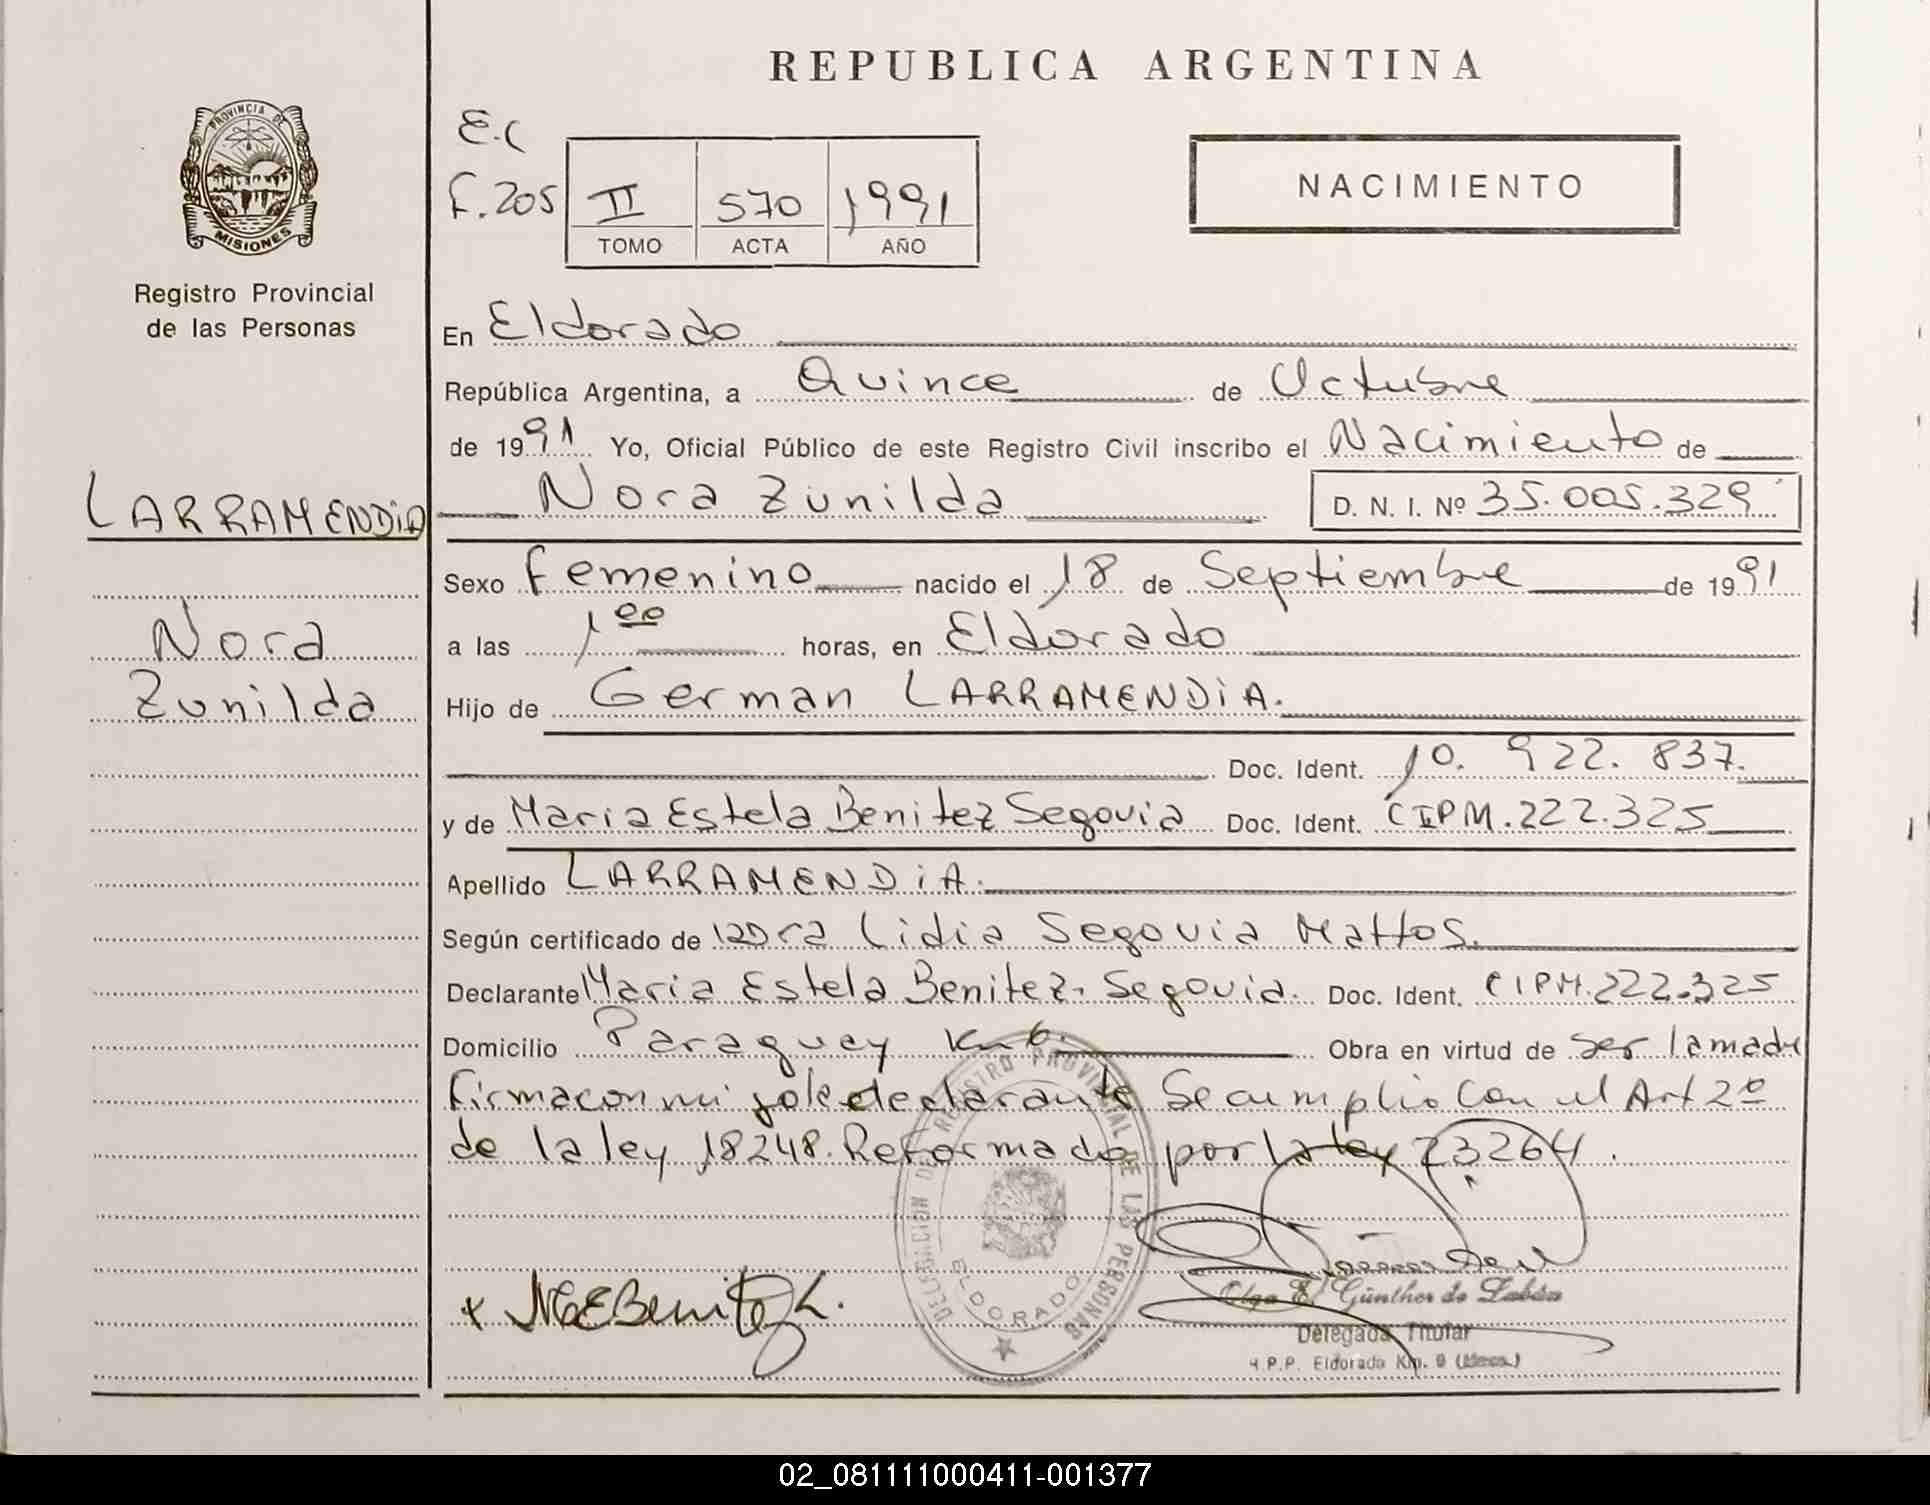 REPUBLICA ARGENTINA
PROVINCIA DE
MISIONES
Registro Provincial
de las Personas
E.C
F.205
II 570 1991
TOMO ACTA AÑO
NACIMIENTO
LARRAMENDIA
Nora
Zunilda
En Eldorado
República Argentina, a Quince de Octubre
de 1991 Yo, Oficial Público de este Registro Civil inscribo el Nacimiento de
Nora Zunilda D. N. I. Nº 35.005.329
Sexo Femenino nacido el 18 de Septiembre de 1991
a las 1 00 horas, en Eldorado
Hijo de German LARRAMENDIA.
Doc. Ident. 10. 922. 837.
y de Maria Estela Benitez Segovia Doc. Ident. CIPM.222.325
Apellido LARRAMENDIA.
Según certificado de la Dra Lidia Segovia Mattos.
Declarante Maria Estela Benitez Segovia. Doc. Ident. CIPM.222.325
Domicilio Paraguay Km 6. Obra en virtud de ser la madre
firma con mi sole declarante Se cumplio Con el Art 2º
de la ley 18248. Reformado por la ley 23264.
DELEGACION DEL REGISTRO PROVINCIAL DE LAS PERSONAS
ELDORADO
x MEBenitez
Olga E. Günther de Labán
Delegada Titular
R.P.P. Eldorado Km. 9 (Mnes.)
02_081111000411-001377